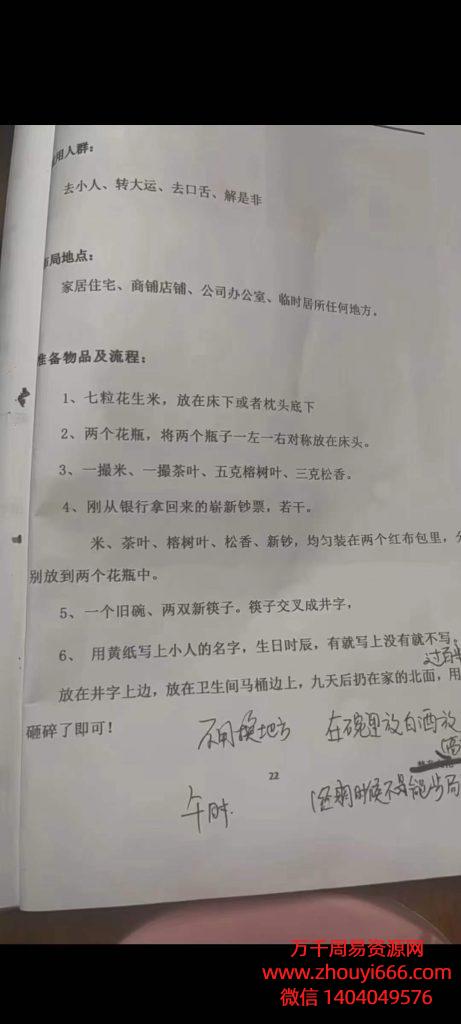 用人群：
去小人、转大运、去口舌、解是非
布局地点：
家居住宅、商铺店铺、公司办公室、临时居所任何地方。
准备物品及流程：
1、七粒花生米，放在床下或者枕头底下
2、两个花瓶，将两个瓶子一左一右对称放在床头。
3、一撮米、一撮茶叶、五克榕树叶、三克松香。
4、刚从银行拿回来的崭新钞票，若干。
米、茶叶、榕树叶、松香、新钞，均匀装在两个红布包里，分
别放到两个花瓶中。
5、一个旧碗、两双新筷子。筷子交叉成井字，
6、用黄纸写上小人的名字，生日时辰，有就写上没有就不写。
放在井字上边，放在卫生间马桶边上，九天后扔在家的北面，用
砸碎了即可！
不用换地方 在碗里放白酒放
22
午时
万千周易资源网
www.zhouyi666.com
微信 1404049576